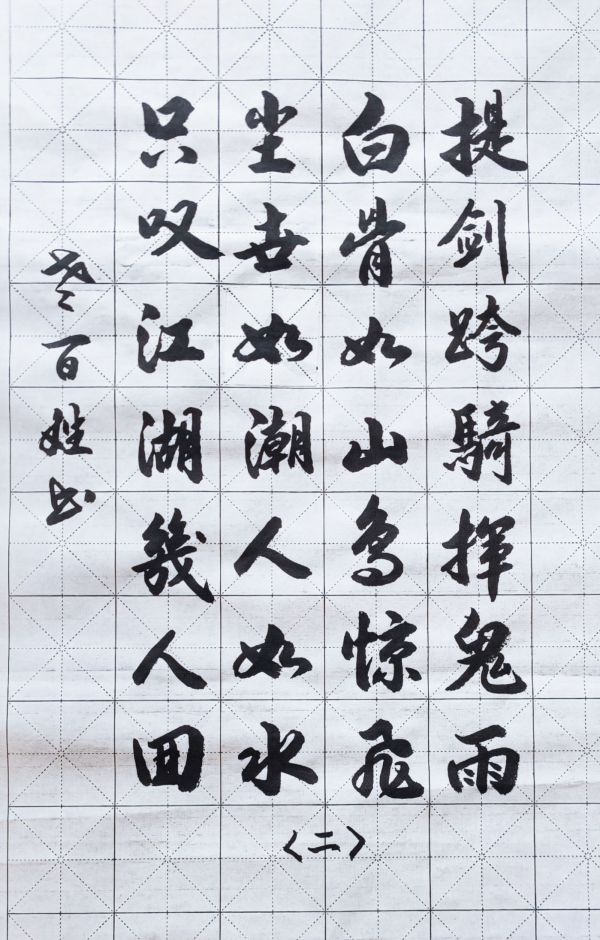 提剑跨騎揮鬼雨
白骨如山鸟惊飛
尘世如潮人如水
只叹江湖幾人回
〈二〉
老百姓书